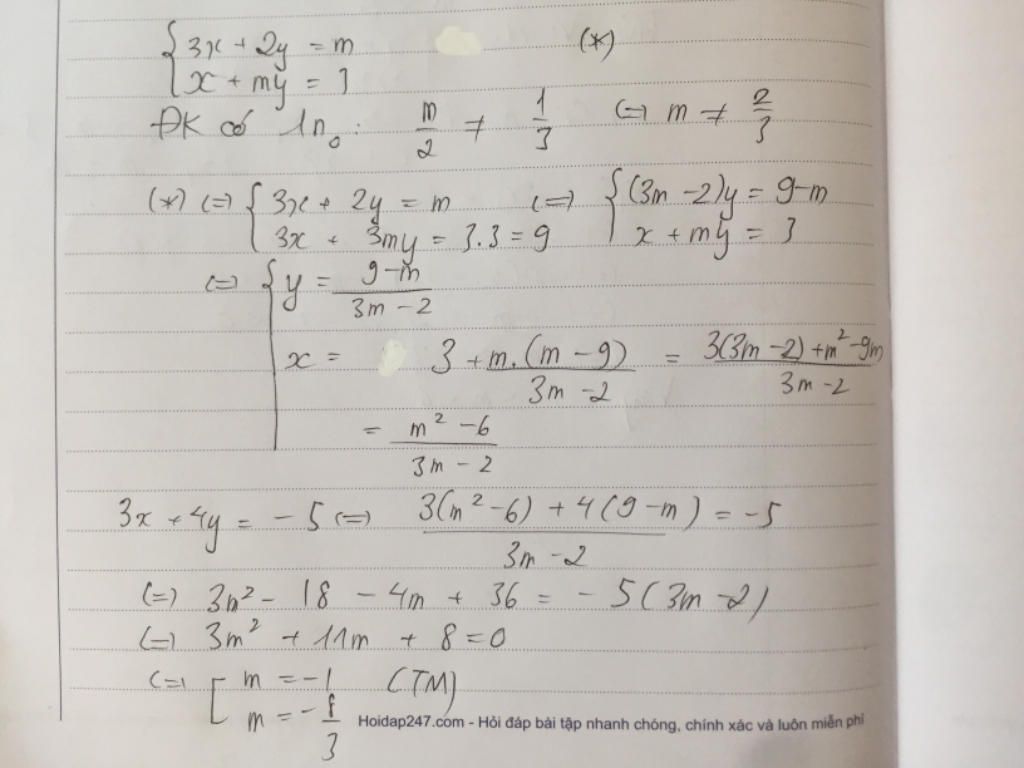 { 3x + 2y = m (*)
{ x + my = 3
ĐK có 1 n₀ : m/2 ≠ 1/3 (=) m ≠ 2/3
(*) (=) { 3x + 2y = m (=) { (3m - 2)y = 9-m
{ 3x + 3my = 3.3 = 9 { x + my = 3
(=) { y = (9-m)/(3m - 2)
x = 3 + m.(m - 9)/(3m - 2) = (3(3m - 2) + m² - 9m)/(3m - 2)
= (m² - 6)/(3m - 2)
3x + 4y = - 5 (=) (3(m² - 6) + 4(9 - m))/(3m - 2) = -5
(=) 3m² - 18 - 4m + 36 = - 5(3m - 2)
(=) 3m² + 11m + 8 = 0
(=) [ m = -1 (TM)
[ m = -8/3
Hoidap247.com - Hỏi đáp bài tập nhanh chóng, chính xác và luôn miễn phí